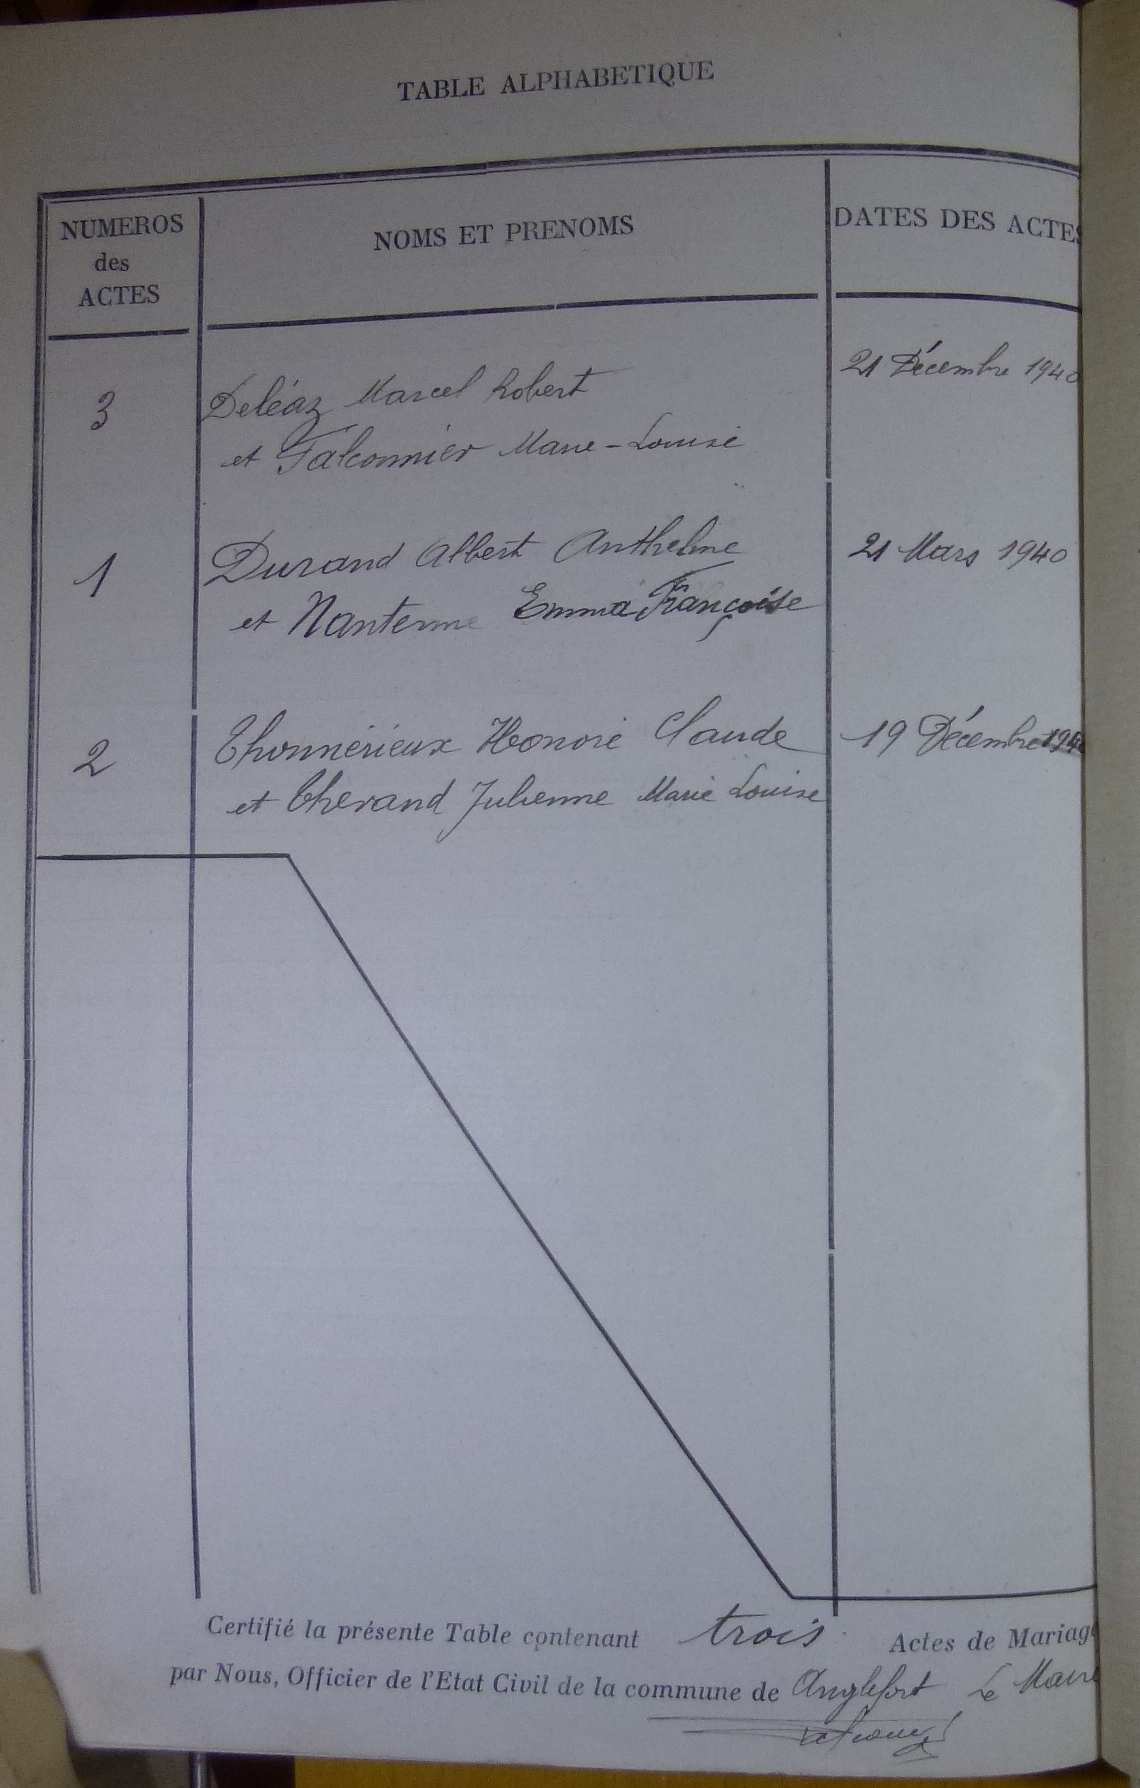 TABLE ALPHABETIQUE
NUMEROS
des
ACTES
NOMS ET PRENOMS
DATES DES ACTES
3
Deléaz Marcel Robert
21 Décembre 1940
et Falconnier Marie-Louise
1
Durand Albert Anthelme
21 Mars 1940
et Nanterme Emma Françoise
2
Thonnérieux Honoré Claude
19 Décembre 1940
et Cherand Julienne Marie Louise
Certifié la présente Table contenant trois Actes de Mariage
par Nous, Officier de l'Etat Civil de la commune de Anglefort Le Maire